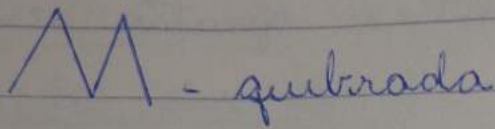 M - quebrada